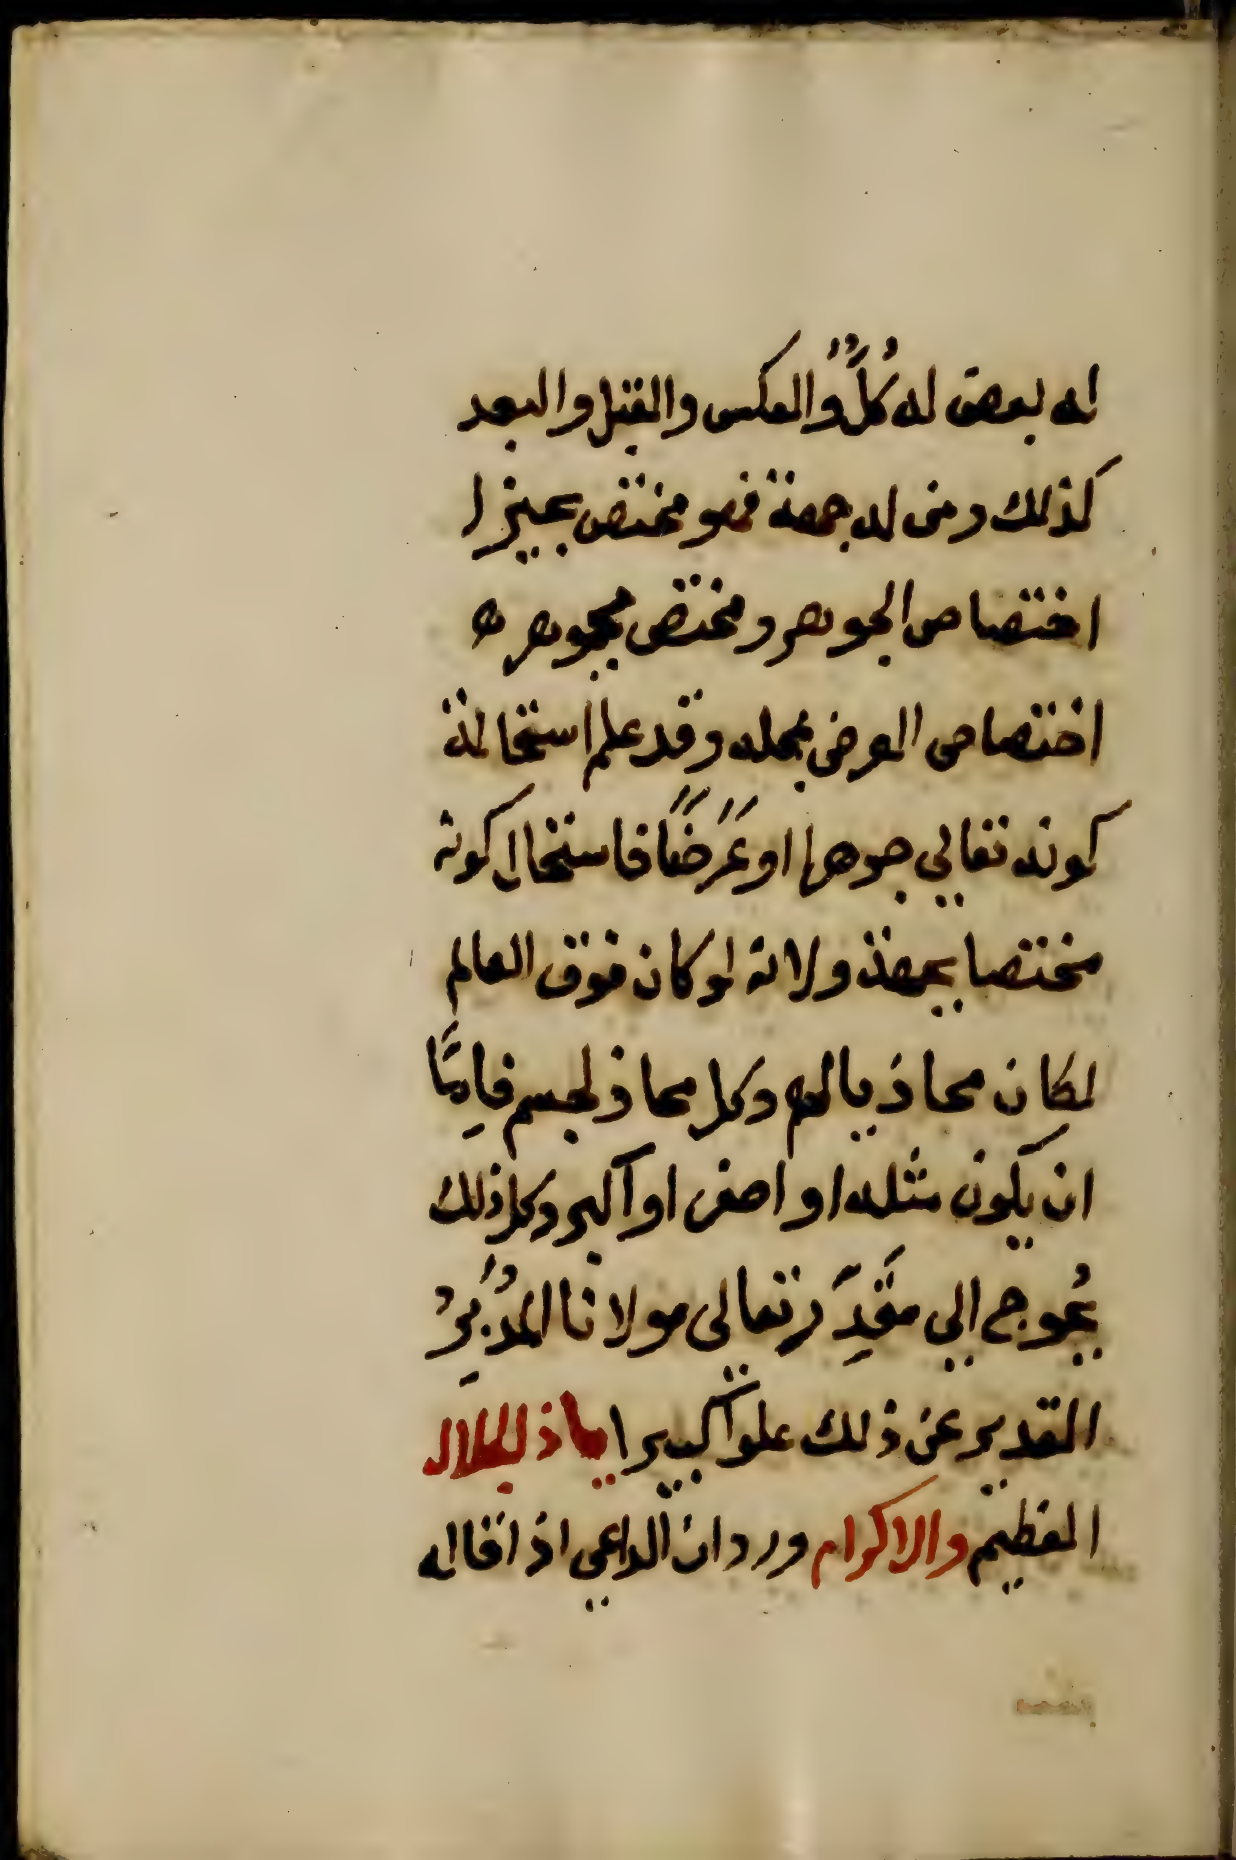 له بعض له كُلٌّ والعكس والقبل والبعد
كذلك ومن له جهة فهو مختص بحيز ا
اختصاص الجوهر ومختص بجوهره
اختصاص العرض بمحله وقد علم استحالة
كونه تعالى جوهرا او عَرَضًا فاستحال كونه
مختصا بجهة ولانه لو كان فوق العالم
لكان محاذيا له وكل محاذ لجسم فاِمَّا
ان يكون مثله او اصغر او آكبر وكل ذلك
يُحوج الي مقَدِّر تعالى مولانا المُدَبِّرُ
القدير عن ذلك علوا كبيرا ياذ الجلال
العظيم والاكرام ورد ان الداعي اذ اقاله